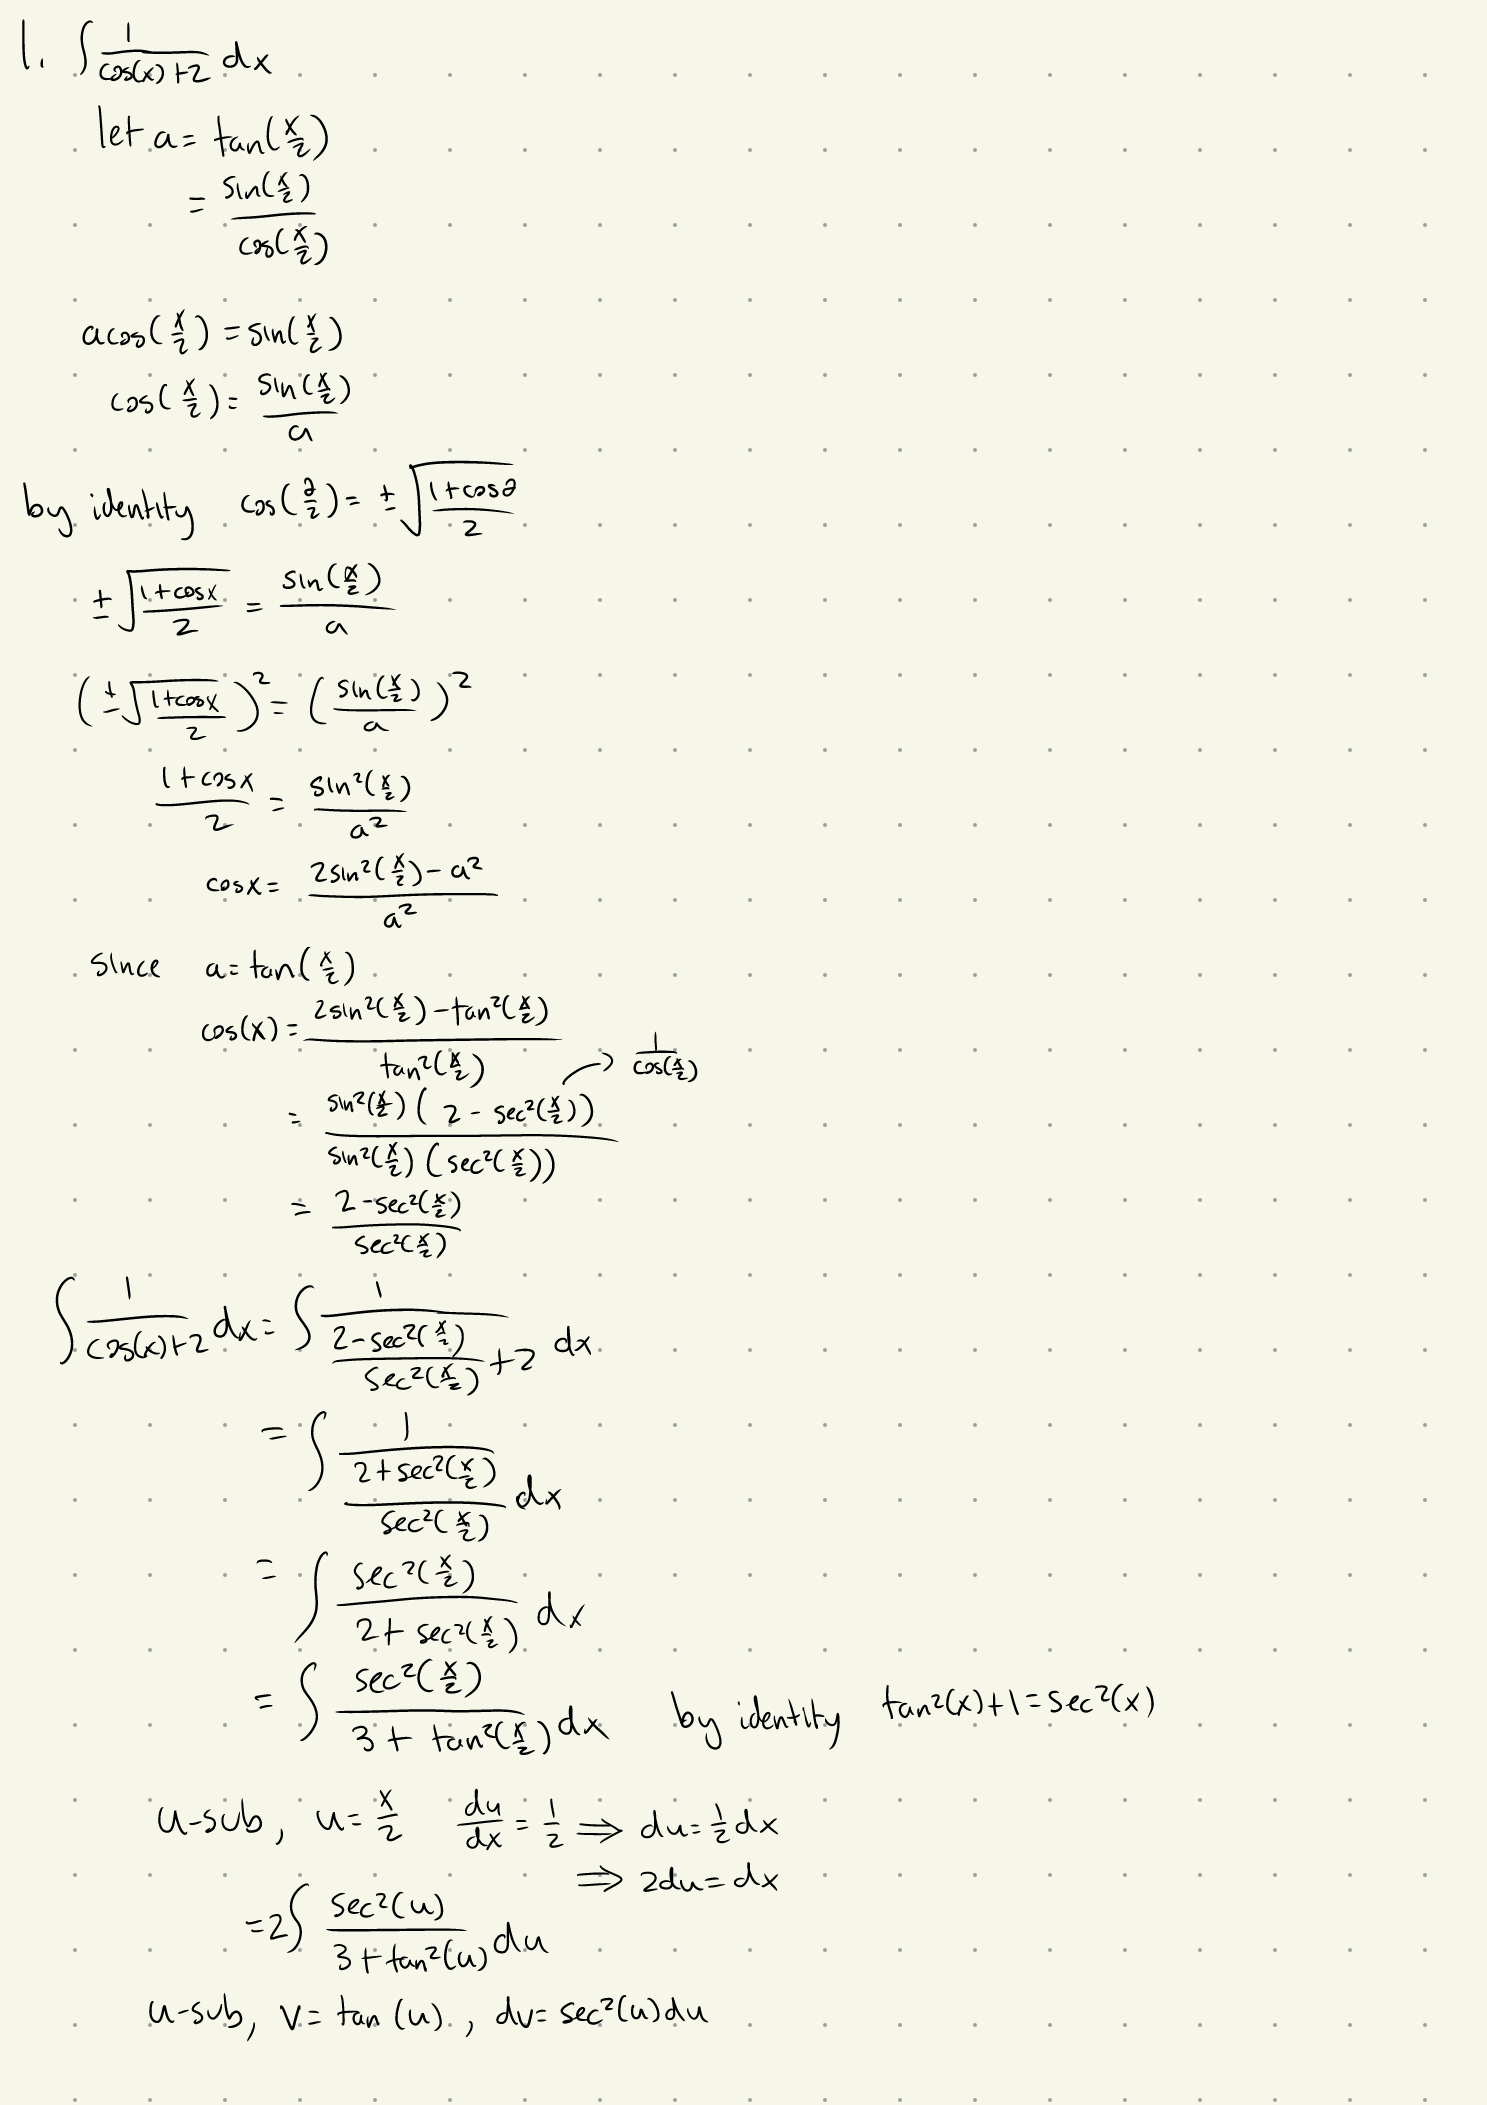 1. ∫ 1/(cos(x)+2) dx
let a = tan(x/2)
= sin(x/2)/cos(x/2)
a cos(x/2) = sin(x/2)
cos(x/2) = sin(x/2)/a
by identity cos(∂/2) = ± √((1+cos∂)/2)
± √((1+cosx)/2) = sin(x/2)/a
(± √((1+cosx)/2))² = (sin(x/2)/a)²
(1+cosx)/2 = sin²(x/2)/a²
cosx = (2sin²(x/2) - a²)/a²
since a = tan(x/2)
cos(x) = (2sin²(x/2) - tan²(x/2))/tan²(x/2)
= sin²(x/2)(2 - sec²(x/2))/(sin²(x/2)(sec²(x/2))) → 1/cos(x/2)
= (2 - sec²(x/2))/sec²(x/2)
∫ 1/(cos(x)+2) dx = ∫ 1/((2 - sec²(x/2))/sec²(x/2) + 2) dx
= ∫ 1/((2 + sec²(x/2))/sec²(x/2)) dx
= ∫ sec²(x/2)/(2 + sec²(x/2)) dx
= ∫ sec²(x/2)/(3 + tan²(x/2)) dx by identity tan²(x)+1 = sec²(x)
u-sub, u = x/2 du/dx = 1/2 ⟹ du = 1/2 dx
⟹ 2du = dx
= 2∫ sec²(u)/(3 + tan²(u)) du
u-sub, v = tan(u), dv = sec²(u)du